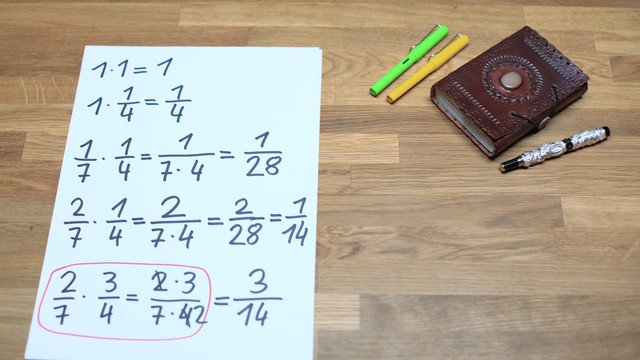 1·1 = 1
1 · 1/4 = 1/4
1/7 · 1/4 = 1/(7·4) = 1/28
2/7 · 1/4 = 2/(7·4) = 2/28 = 1/14
2/7 · 3/4 = (2·3)/(7·42) = 3/14